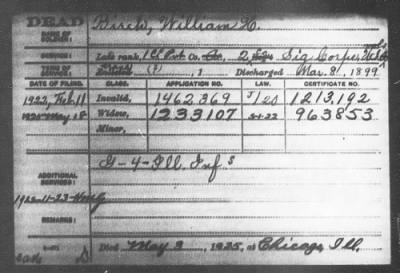 DEAD
NAME OF SOLDIER:
Birch, William H.
SERVICE:
Late rank, 1 Cl Pvt Co. 2 Sig Corps, U.S. Vols
TERM OF SERVICE:
Enlisted , 1 Discharged Mar. 8, 1899
DATE OF FILING. CLASS. APPLICATION NO. LAW. CERTIFICATE NO.
1922, Feb. 11 Invalid, 1462,369 J/20 1213,192
1925 May 18 Widow, 1233107 5-1-22 963853
Minor,
ADDITIONAL SERVICES:
G-4-Ill. Inf s
1922-11-23
REMARKS:
Died May 3, 1925, at Chicago, Ill.